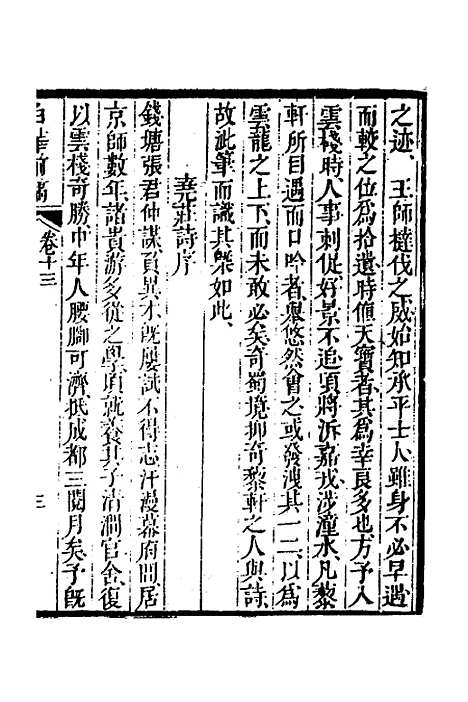 之迹王師撻伐之威始知承平士人雖身不必早遇
而較之位爲拾遺時値天寶者其爲幸良多也方予入
雲棧時人事刺促好景不追頃將泝嘉戎涉潼水凡藜
軒所目遇而口吟者舉悠然會之或發洩其一二以爲
雲龍之上下而未敢必矣奇蜀境抑奇藜軒之人與詩
故泚筆而識其槩如此
堯莊詩序
錢塘張君仲謀負異才旣屢試不得志汗漫幕府間居
京師數年諸貴游多從之學頃就養其子清澗官舍復
以雲棧奇勝中年人腰腳可濟抵成都三閱月矣予旣
白華前稿
卷十三
三